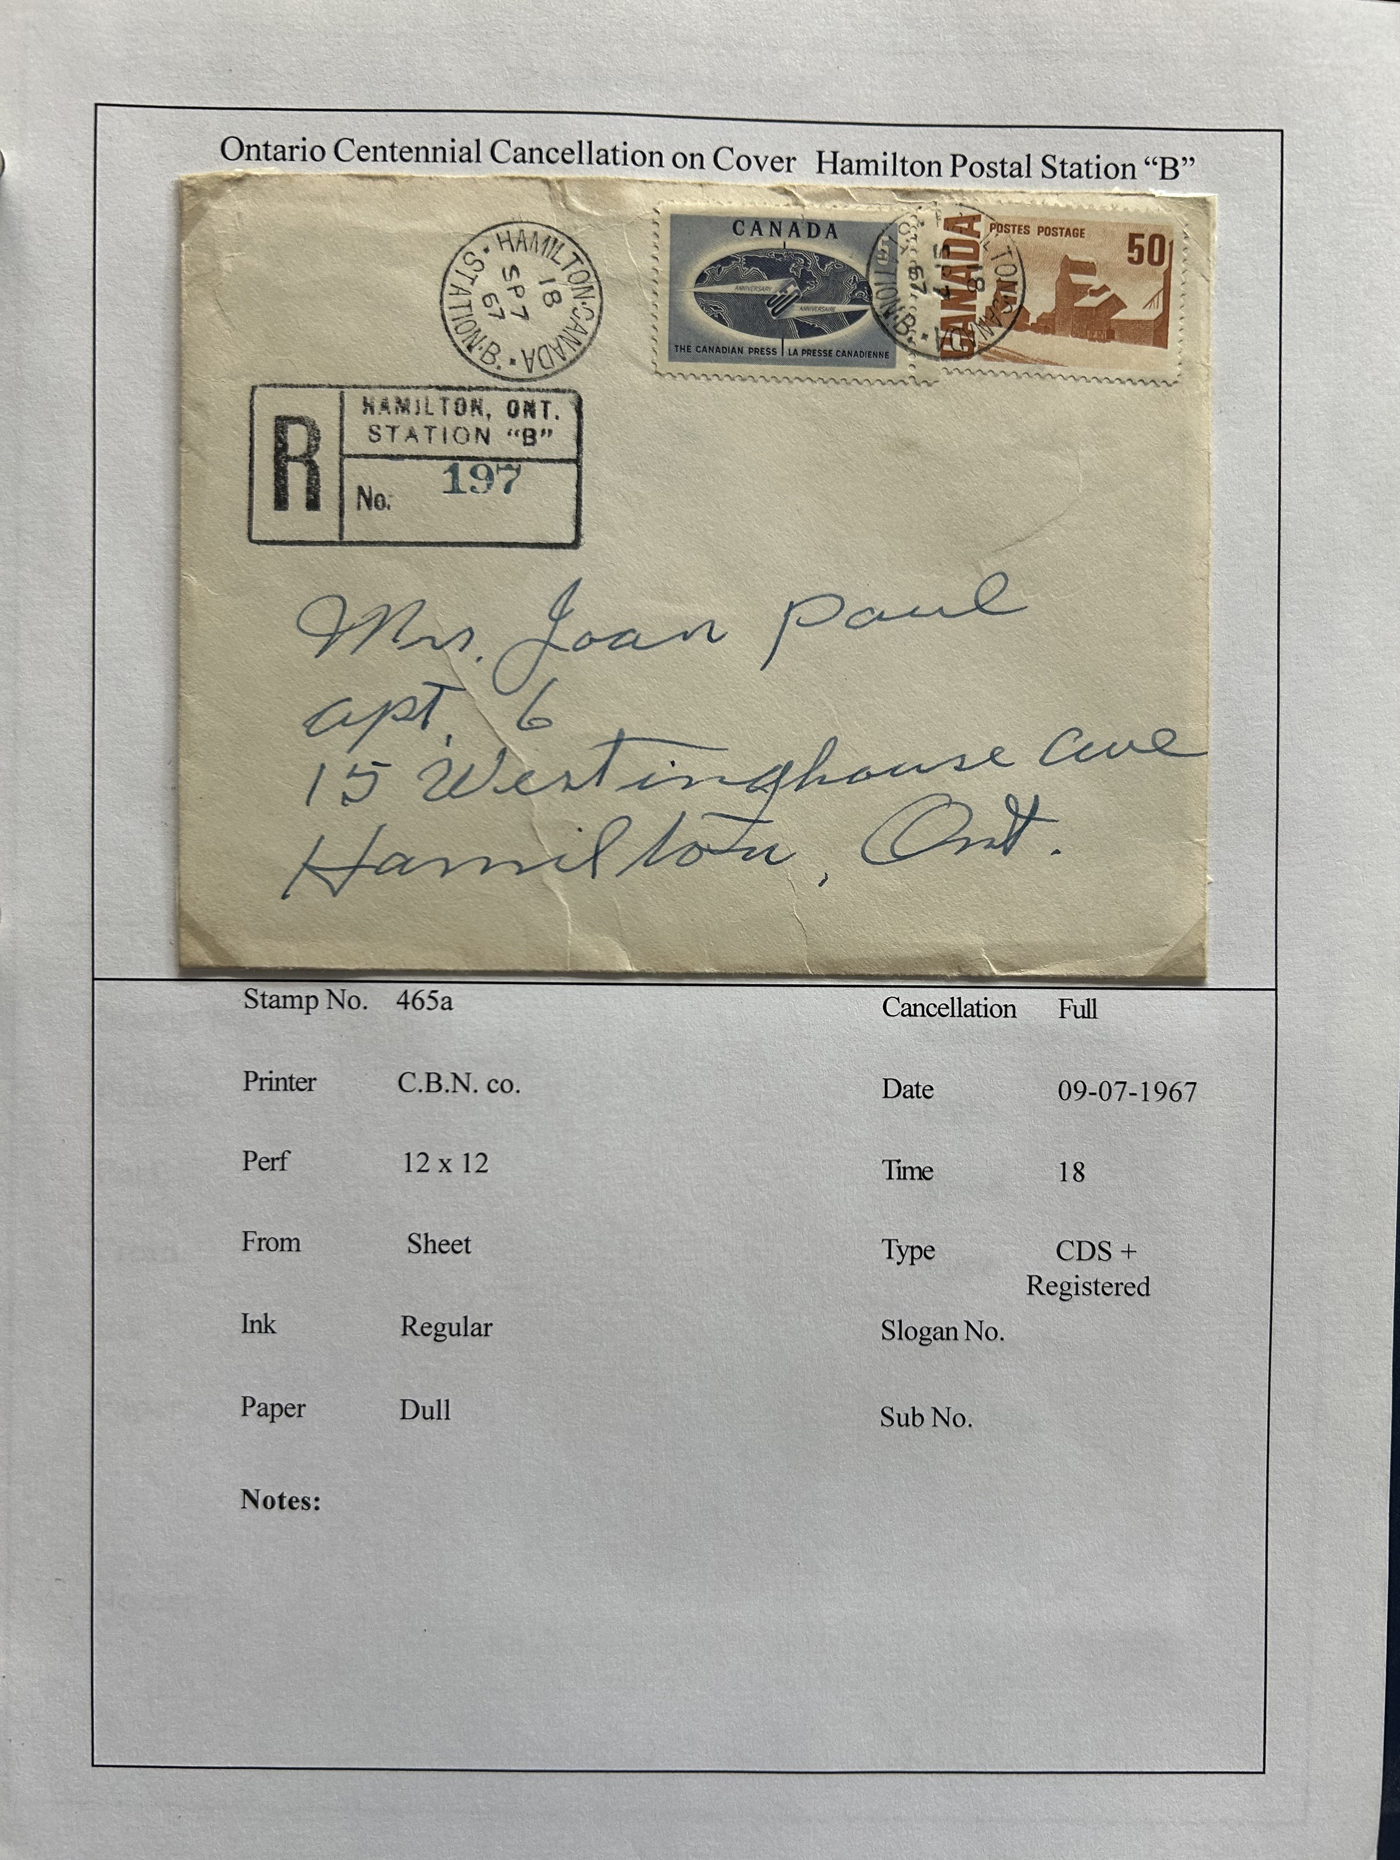 Ontario Centennial Cancellation on Cover Hamilton Postal Station “B”
HAMILTON·CANADA·
STATION·B·
18
SP 7
67
CANADA
ANNIVERSARY 50 ANNIVERSAIRE
THE CANADIAN PRESS LA PRESSE CANADIENNE
CANADA
POSTES POSTAGE
50
R
HAMILTON, ONT.
STATION "B"
No. 197
Mrs. Joan Paul
apt. 6
15 Westinghouse Ave
Hamilton, Ont.
Stamp No. 465a
Printer C.B.N. co.
Perf 12 x 12
From Sheet
Ink Regular
Paper Dull
Notes:
Cancellation Full
Date 09-07-1967
Time 18
Type CDS +
Registered
Slogan No.
Sub No.